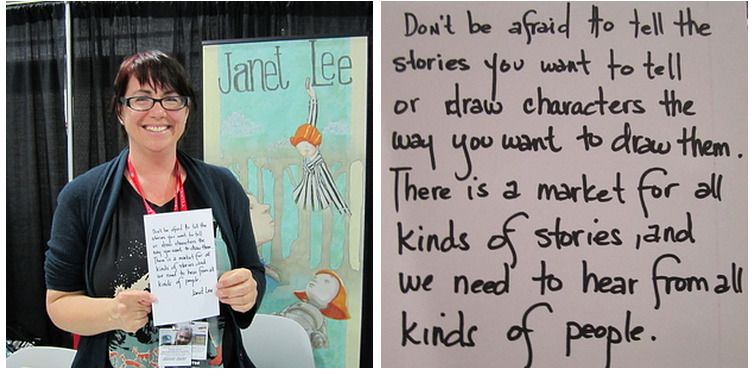 Janet Lee
Don't be afraid to tell the
stories you want to tell
or draw characters the
way you want to draw them
There is a market for all
kinds of stories, and
we need to hear from all
kinds of people.
Janet Lee
Don't be afraid to tell the
stories you want to tell
or draw characters the
way you want to draw them.
There is a market for all
kinds of stories, and
we need to hear from all
kinds of people.